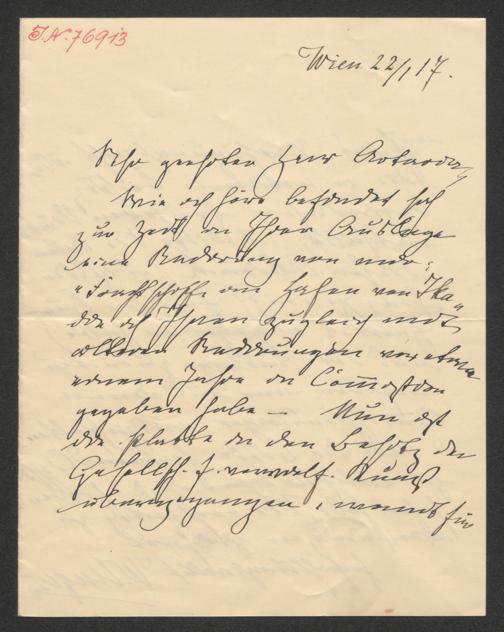 I.N. 76913
Wien 22/1 17.
Sehr geehrter Herr Artaria,
Wie ich höre befindet sich
zur Zeit in Ihrer Auslage
eine Radierung von mir:
"Frachtschiffe im Hafen von Ika"
die ich Ihnen zugleich mit
älteren Radierungen vor etwa
einem Jahre in Commission
gegeben habe — Nun ist
die Platte in den Besitz der
Gesellsch. f. vervielf. Kunst
übergegangen, womit für